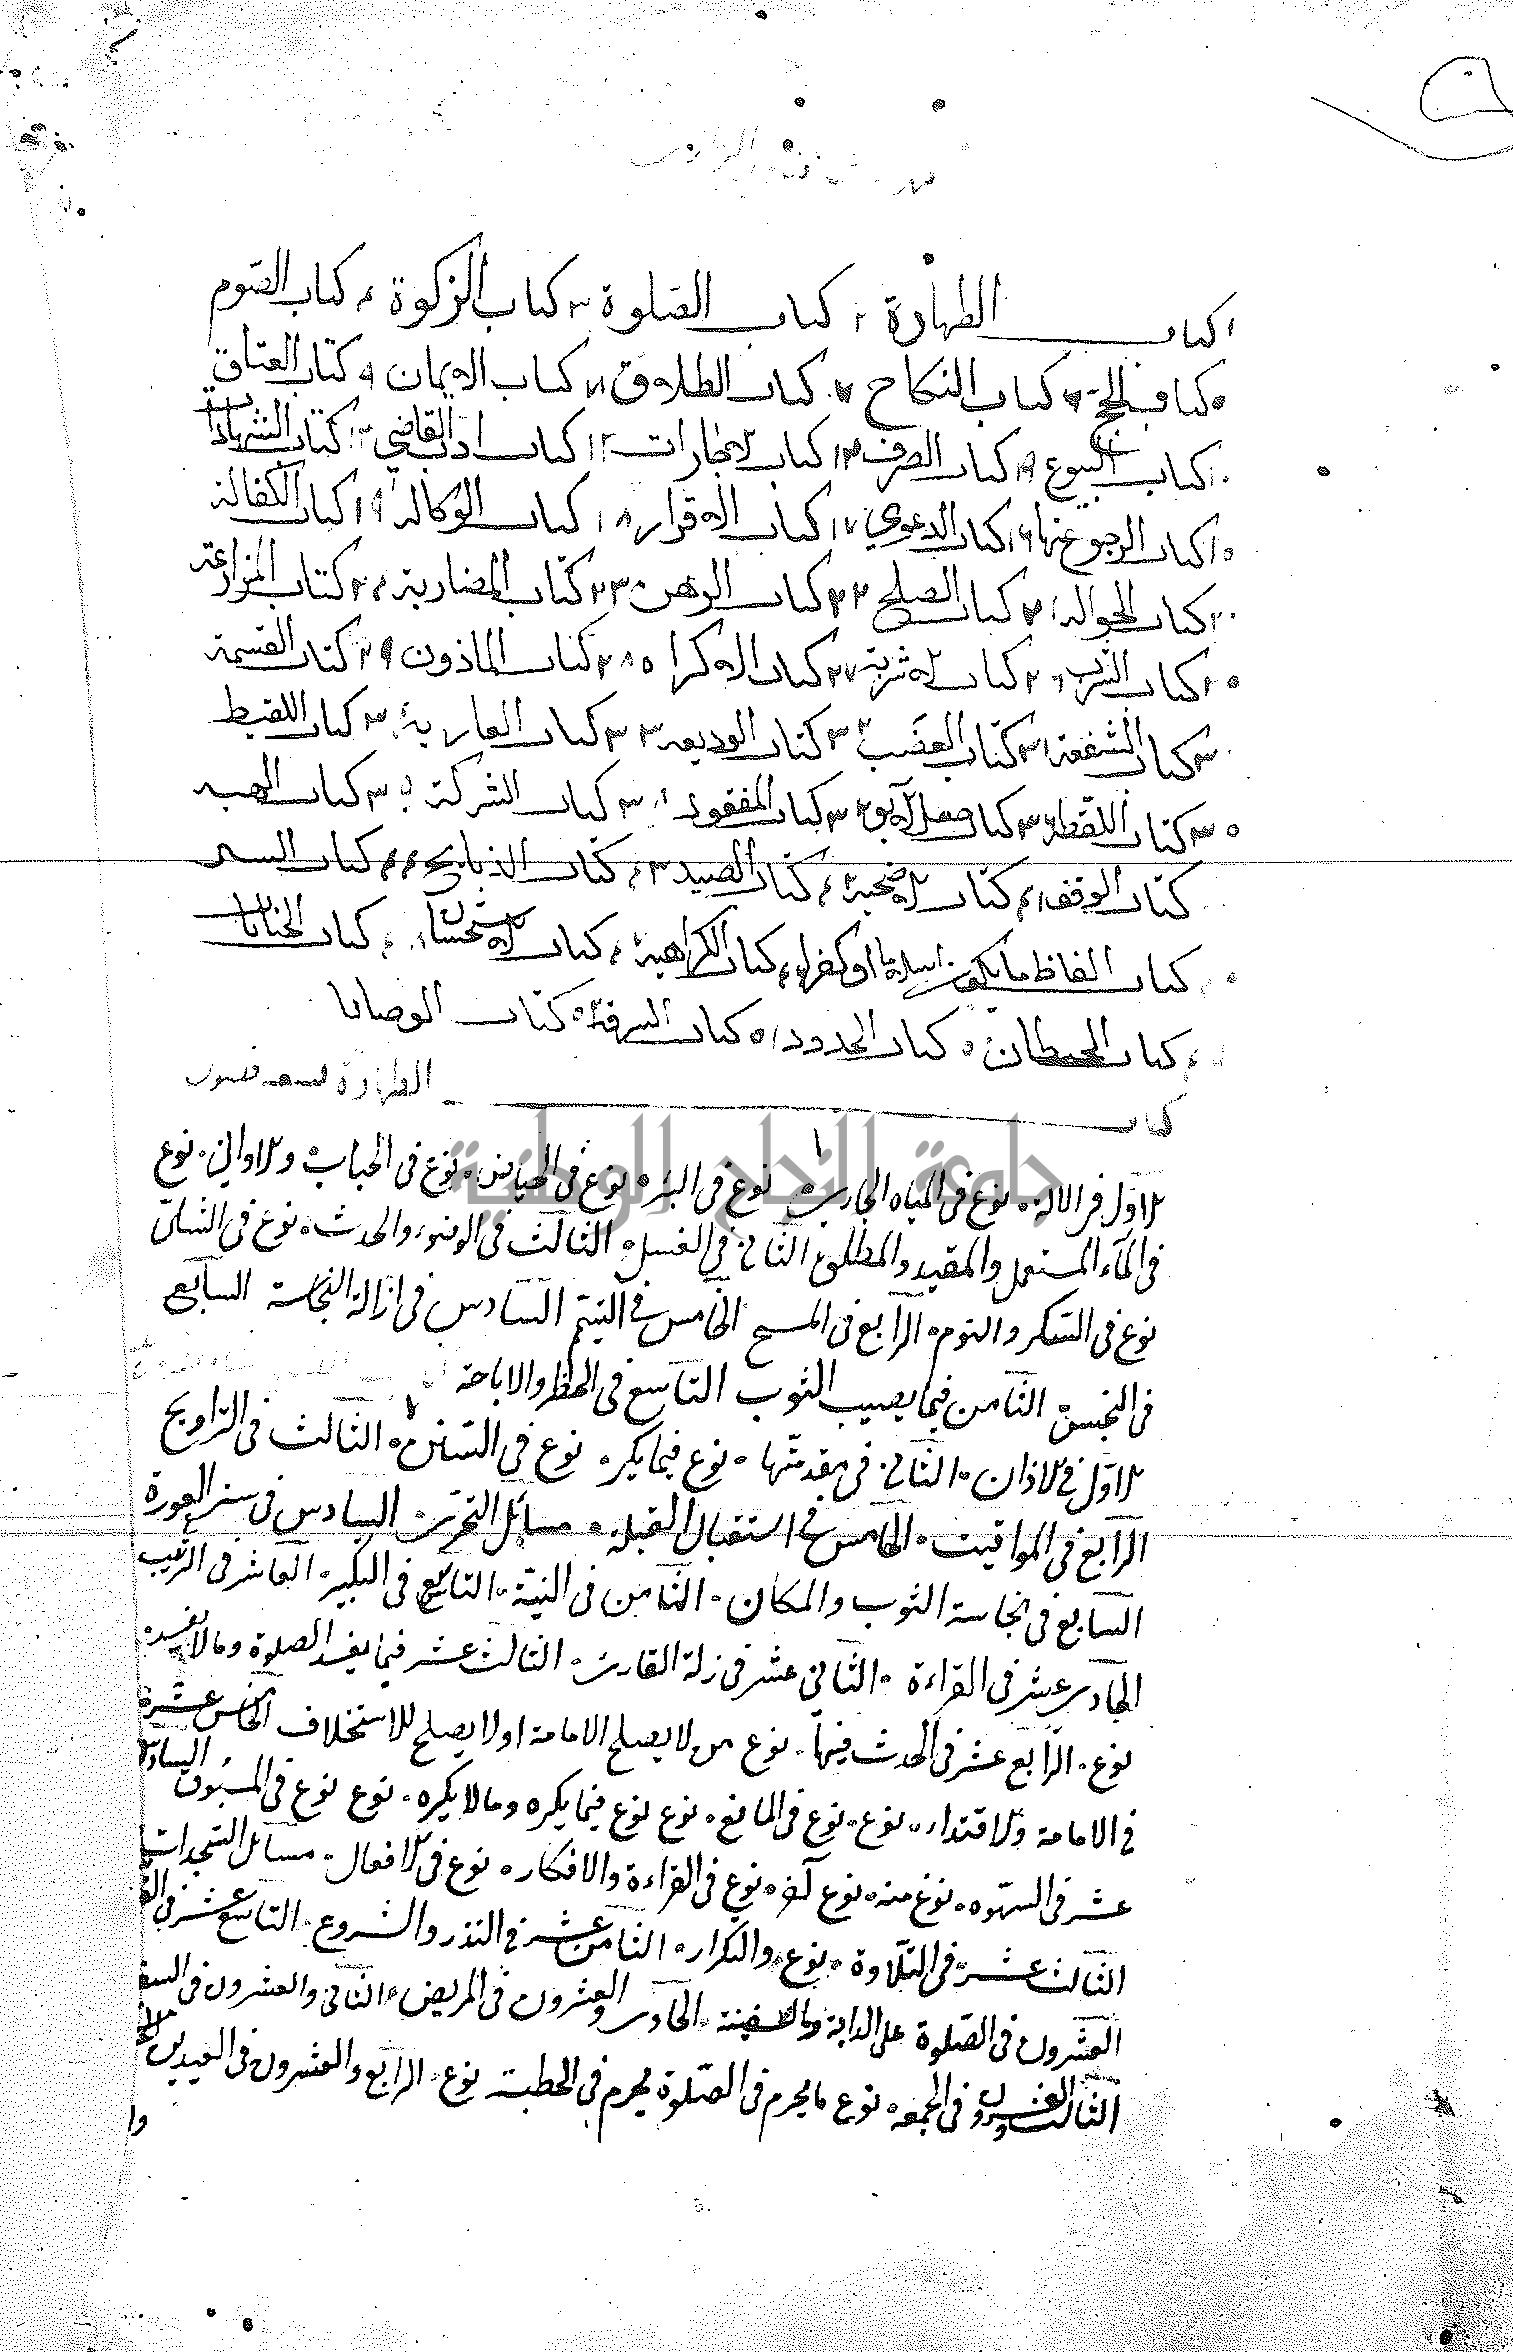 كتاب الطهارة ٢ كتاب الصلوة ٣ كتاب الزكوة ٤ كتاب الصوم
٥ كتاب الحج ٦ كتاب النكاح ٧ كتاب الطلاق ٨ كتاب الايمان ٩ كتاب العتاق
١٠ كتاب البيوع ١١ كتاب الصرف ١٢ كتاب الاجارات ١٣ كتاب ادب القاضي ١٤ كتاب الشهادات
١٥ كتاب الرجوع عنها ١٦ كتاب الدعوى ١٧ كتاب الاقرار ١٨ كتاب الوكالة ١٩ كتاب الكفالة
٢٠ كتاب الحوالة ٢١ كتاب الصلح ٢٢ كتاب الرهن ٢٣ كتاب المضاربة ٢٤ كتاب المزارعة
٢٥ كتاب الشرب ٢٦ كتاب الاشربة ٢٧ كتاب الاكراه ٢٨ كتاب الماذون ٢٩ كتاب القسمة
٣٠ كتاب الشفعة ٣١ كتاب الغصب ٣٢ كتاب الوديعة ٣٣ كتاب العارية ٣٤ كتاب اللقيط
٣٥ كتاب اللقطة ٣٦ كتاب جعل الآبق ٣٧ كتاب المفقود ٣٨ كتاب الشركة ٣٩ كتاب الهبة
كتاب الوقف ٤١ كتاب الاضحية ٤٢ كتاب الصيد ٤٣ كتاب الذبايح ٤٤ كتاب السير
كتاب الفاظ ما يكون اسلاما او كفرا كتاب الكراهية كتاب الاستحسان كتاب الجنايات
كتاب الحيطان كتاب الحدود ٥١ كتاب السرقة كتاب الوصايا
كتاب الطهارة تسعة فصول
الاول فى الالة نوع فى المياه الجارية نوع فى البئر نوع فى الحياض نوع فى الحباب والاوانى نوع
فى الماء المستعمل والمقيد والمطلق الثانى فى الغسل الثالث فى الوضوء والحدث نوع فى الشك
نوع فى السكر والنوم الرابع فى المسح الخامس فى التيمم السادس فى ازالة النجاسة السابع
فى النجس الثامن فيما يصيب الثوب التاسع فى الحظر والاباحة
الاول فى الاذان الثانى فى مقدمتها نوع فيما يكره نوع فى السنن الثالث فى التراويح
الرابع فى المواقيت الخامس فى استقبال القبلة مسائل التحرى السادس فى ستر العورة
السابع فى نجاسة الثوب والمكان الثامن فى النية التاسع فى التكبير العاشر فى الترتيب
الحادى عشر فى القراءة الثانى عشر فى زلة القارئ الثالث عشر فيما يفسد الصلوة وما لا يفسد
نوع الرابع عشر فى الحدث فيها نوع من لا يصلح الامامة او لا يصلح للاستخلاف الخامس عشر
فى الامامة والاقتداء نوع نوع فى المانع نوع نوع فيما يكره وما لا يكره نوع نوع فى المسبوق السادس
عشر فى السهو نوع منه نوع آخر نوع فى القراءة والافكار نوع فى الافعال مسائل السجدات
الثالث عشر فى التلاوة نوع والتكرار الثامن عشر فى النذر والشروع التاسع عشر فى
العشرون فى الصلوة على الدابة والسفينة الحادى والعشرون فى المريض الثانى والعشرون فى السفر
الثالث والعشرون فى الجمعة نوع ما يحرم فى الصلوة يحرم فى الخطبة نوع الرابع والعشرون فى العيدين
وا